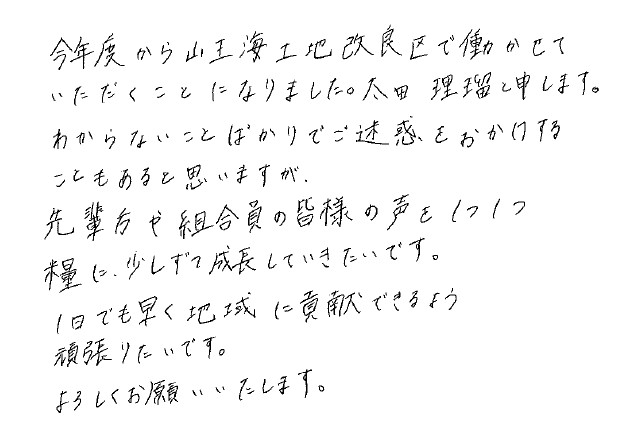 今年度から山王海土地改良区で働かせて
いただくことになりました。太田 理瑠と申します。
わからないことばかりでご迷惑をおかけする
こともあると思いますが、
先輩方や組合員の皆様の声を1つ1つ
糧に、少しずつ成長していきたいです。
1日でも早く地域に貢献できるよう
頑張りたいです。
よろしくお願いいたします。